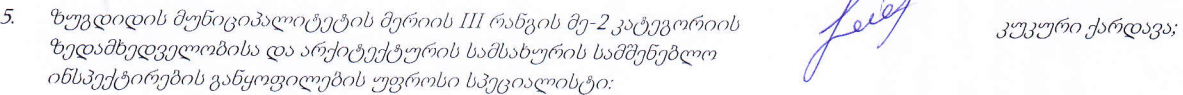 5. ზუგდიდის მუნიციპალიტეტის მერიის III რანგის მე-2 კატეგორიის
ზედამხედველობისა და არქიტექტურის სამსახურის სამშენებლო
ინსპექტირების განყოფილების უფროსი სპეციალისტი:
კუკური ქარდავა;